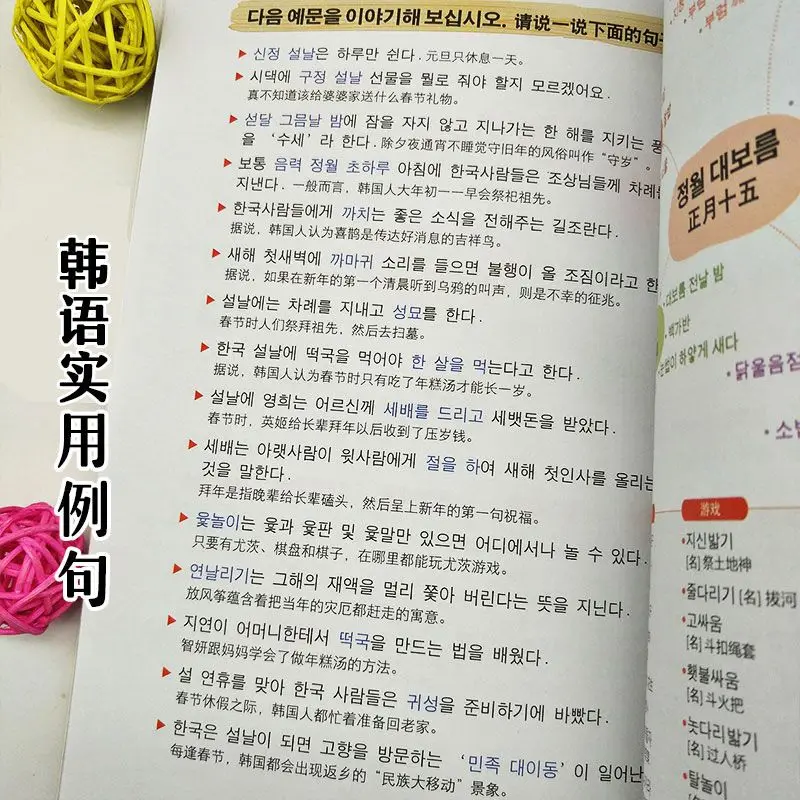 다음 예문을 이야기해 보십시오. 请说一说下面的句子
신정 설날은 하루만 쉰다. 元旦只休息一天。
시댁에 구정 설날 선물을 뭘로 줘야 할지 모르겠어요.
真不知道该给婆婆家送什么春节礼物。
섣달 그믐날 밤에 잠을 자지 않고 지나가는 한 해를 지키는 풍
을 ‘수세’라 한다. 除夕夜通宵不睡觉守旧年的风俗叫作“守岁”。
보통 음력 정월 초하루 아침에 한국사람들은 조상님들께 차례를
지낸다. 一般而言，韩国人大年初一一早会祭祀祖先。
한국사람들에게 까치는 좋은 소식을 전해주는 길조란다.
据说，韩国人认为喜鹊是传达好消息的吉祥鸟。
새해 첫새벽에 까마귀 소리를 들으면 불행이 올 조짐이라고 한
据说，如果在新年的第一个清晨听到乌鸦的叫声，则是不幸的征兆。
설날에는 차례를 지내고 성묘를 한다.
春节时人们祭拜祖先，然后去扫墓。
한국 설날에 떡국을 먹어야 한 살을 먹는다고 한다.
据说，韩国人认为春节时只有吃了年糕汤才能长一岁。
설날에 영희는 어르신께 세배를 드리고 세뱃돈을 받았다.
春节时，英姬给长辈拜年以后收到了压岁钱。
세배는 아랫사람이 윗사람에게 절을 하여 새해 첫인사를 올리는
것을 말한다.
拜年是指晚辈给长辈磕头，然后呈上新年的第一句祝福。
윷놀이는 윷과 윷판 및 윷말만 있으면 어디에서나 놀 수 있다.
只要有尤茨、棋盘和棋子，在哪里都能玩尤茨游戏。
연날리기는 그해의 재액을 멀리 쫓아 버린다는 뜻을 지닌다.
放风筝蕴含着把当年的灾厄都赶走的寓意。
지연이 어머니한테서 떡국을 만드는 법을 배웠다.
智妍跟妈妈学会了做年糕汤的方法。
설 연휴를 맞아 한국 사람들은 귀성을 준비하기에 바빴다.
春节休假之际，韩国人都忙着准备回老家。
한국은 설날이 되면 고향을 방문하는 ‘민족 대이동’이 일어난
每逢春节，韩国都会出现返乡的“民族大移动”景象。
韩语实用例句
정월 대보름
正月十五
대보름 전날 밤
백가반
눈썹이 하얗게 세다
닭울음점
소밥
游戏
지신밟기
[名] 祭土地神
줄다리기 [名] 拔河
고싸움
[名] 斗扣绳套
횃불싸움
[名] 斗火把
놋다리밟기
[名] 过人桥
탈놀이